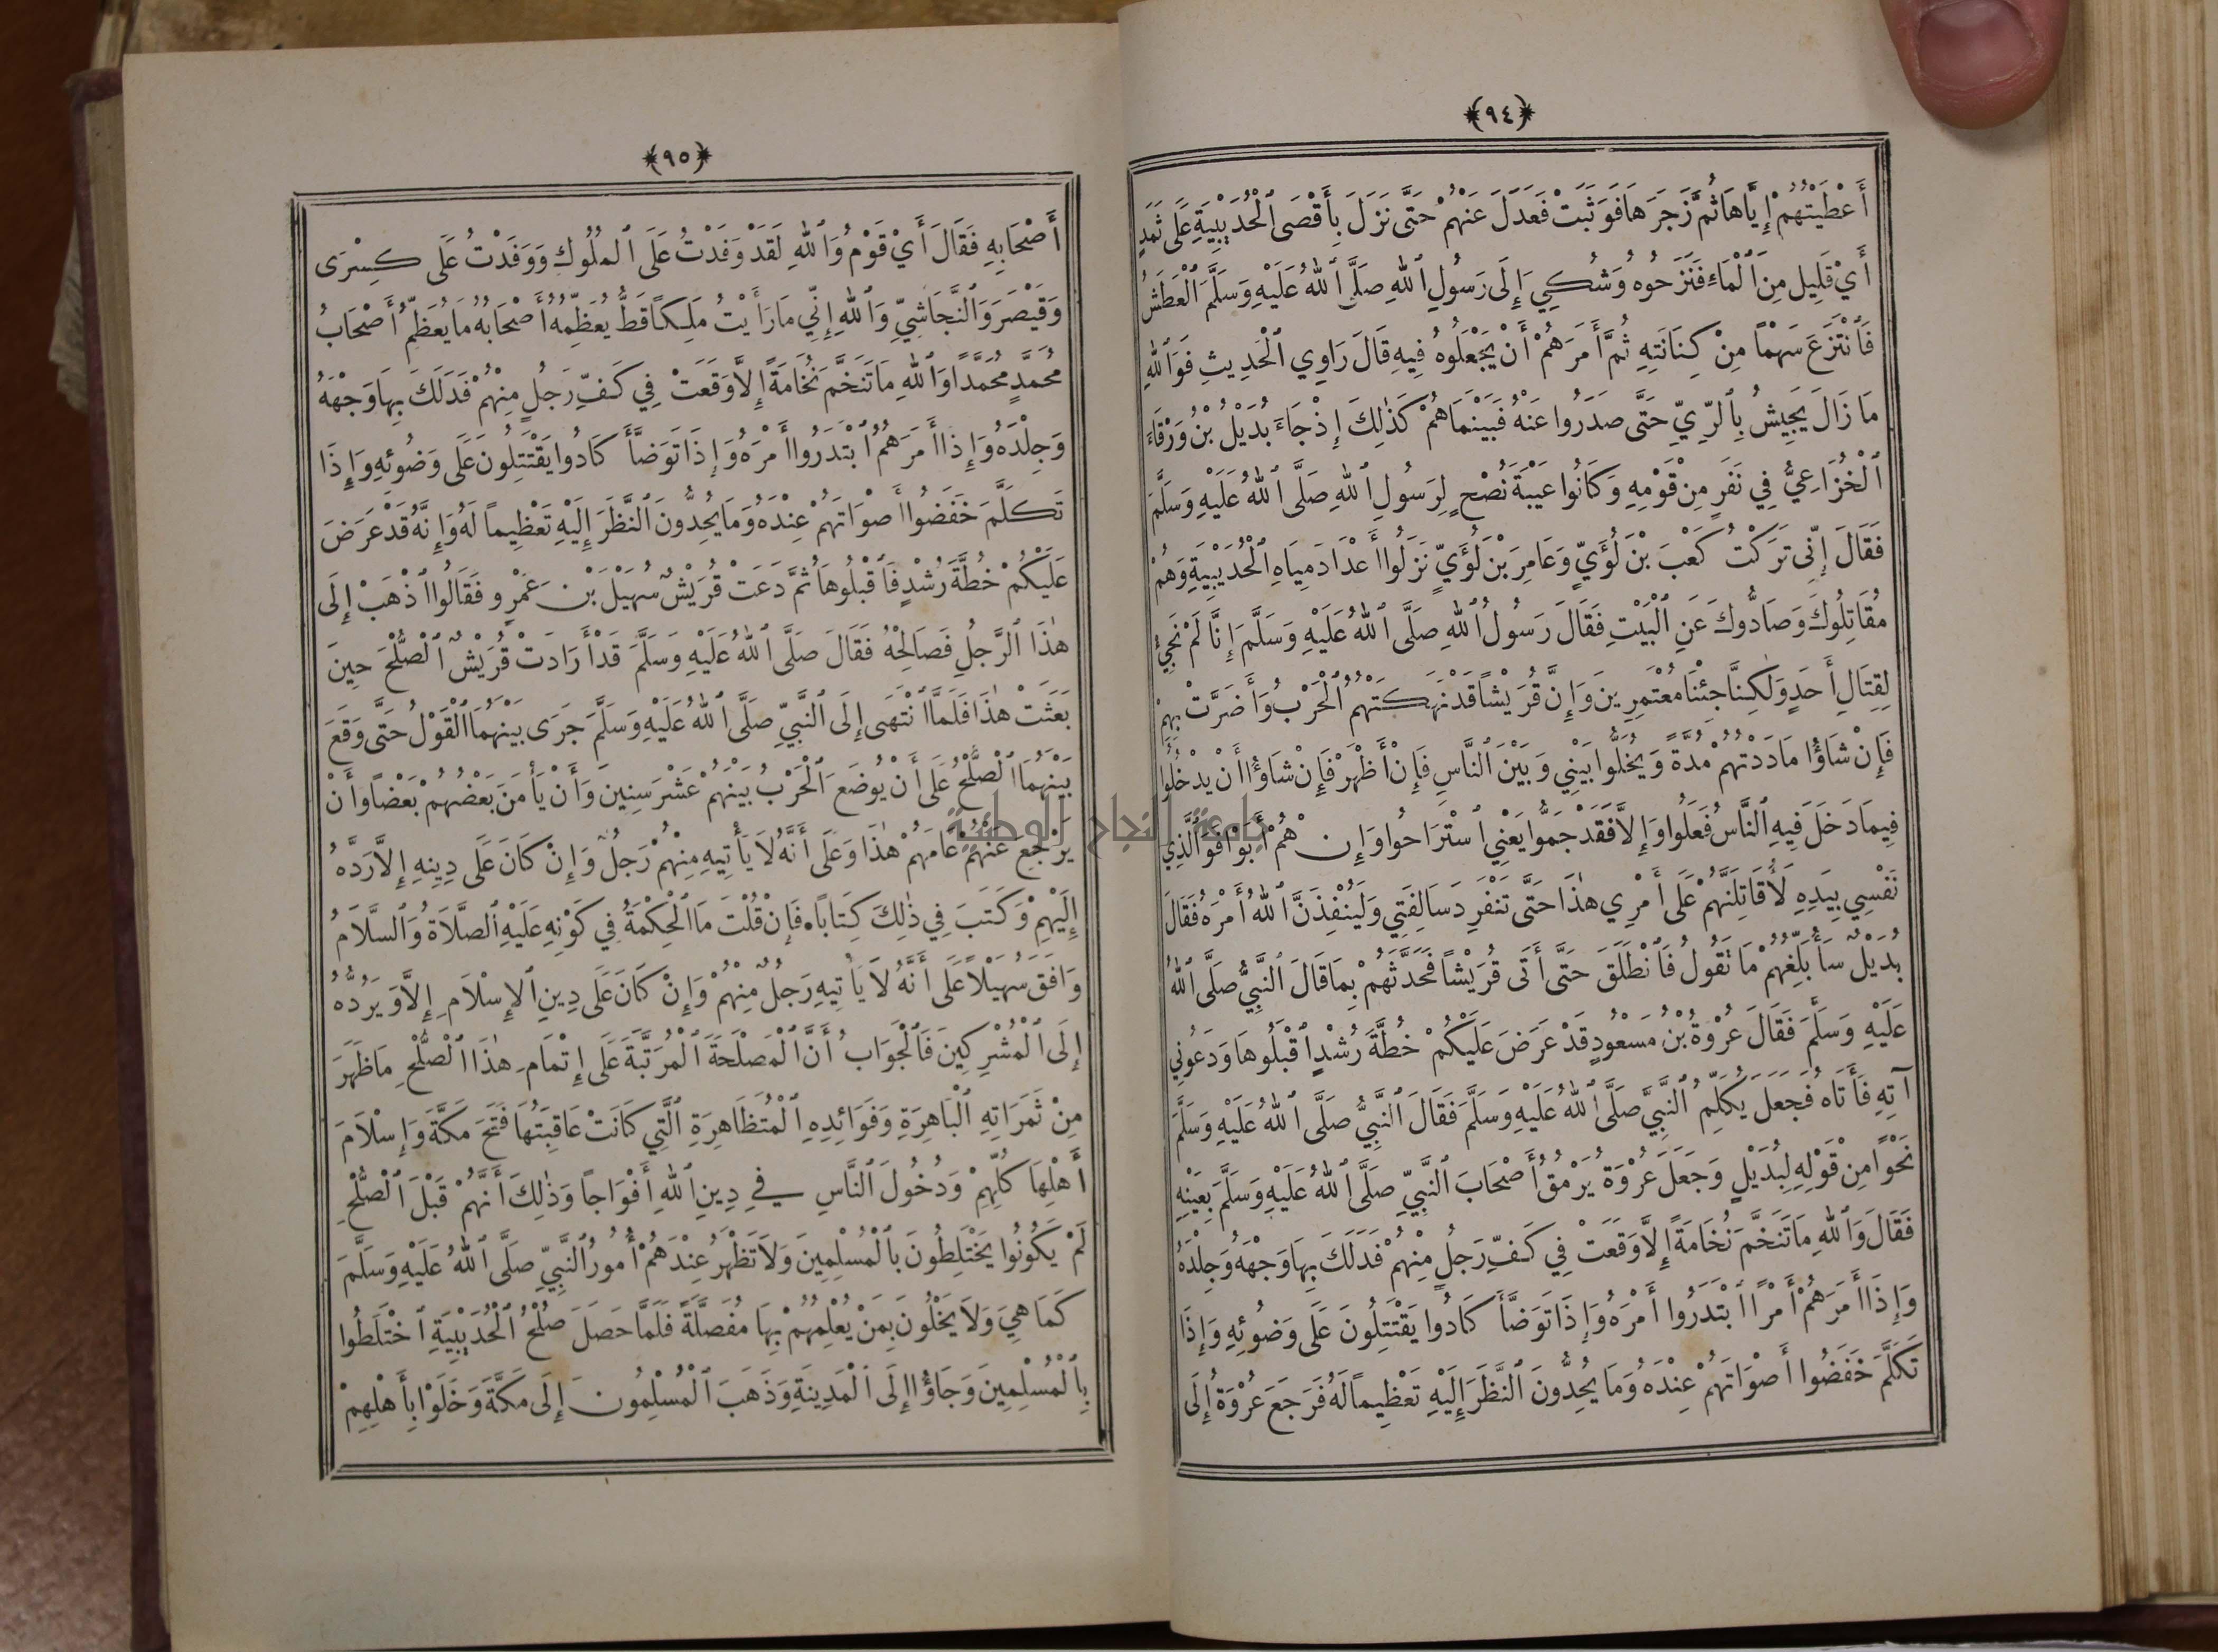 ﴿٩٤﴾
أَعْطَيْتُهُمْ إِيَّاهَا ثُمَّ زَجَرَهَا فَوَثَبَتْ فَعَدَلَ عَنْهُمْ حَتَّى نَزَلَ بِأَقْصَى ٱلْحُدَيْبِيَةِ عَلَى ثَمَدٍ
أَيْ قَلِيلٍ مِنَ ٱلْمَاءِ فَنَزَحُوهُ وَشُكِيَ إِلَى رَسُولِ ٱللهِ صَلَّى ٱللهُ عَلَيْهِ وَسَلَّمَ ٱلْعَطَشُ
فَٱنْتَزَعَ سَهْمًا مِنْ كِنَانَتِهِ ثُمَّ أَمَرَهُمْ أَنْ يَجْعَلُوهُ فِيهِ قَالَ رَاوِي ٱلْحَدِيثِ فَوَٱللهِ
مَا زَالَ يَجِيشُ بِٱلرِّيِّ حَتَّى صَدَرُوا عَنْهُ فَبَيْنَمَا هُمْ كَذٰلِكَ إِذْ جَاءَ بُدَيْلُ بْنُ وَرْقَاءَ
ٱلْخُزَاعِيُّ فِي نَفَرٍ مِنْ قَوْمِهِ وَكَانُوا عَيْبَةَ نُصْحٍ لِرَسُولِ ٱللهِ صَلَّى ٱللهُ عَلَيْهِ وَسَلَّمَ
فَقَالَ إِنِّي تَرَكْتُ كَعْبَ بْنَ لُؤَيٍّ وَعَامِرَ بْنَ لُؤَيٍّ نَزَلُوا أَعْدَادَ مِيَاهِ ٱلْحُدَيْبِيَةِ وَهُمْ
مُقَاتِلُوكَ وَصَادُّوكَ عَنِ ٱلْبَيْتِ فَقَالَ رَسُولُ ٱللهِ صَلَّى ٱللهُ عَلَيْهِ وَسَلَّمَ إِنَّا لَمْ نَجِئْ
لِقِتَالِ أَحَدٍ وَلٰكِنَّا جِئْنَا مُعْتَمِرِينَ وَإِنَّ قُرَيْشًا قَدْ نَهَكَتْهُمُ ٱلْحَرْبُ وَأَضَرَّتْ بِهِمْ
فَإِنْ شَاؤُا مَادَدْتُهُمْ مُدَّةً وَيُخَلُّوا بَيْنِي وَبَيْنَ ٱلنَّاسِ فَإِنْ أَظْهَرْ فَإِنْ شَاؤُا أَنْ يَدْخُلُوا
فِيمَا دَخَلَ فِيهِ ٱلنَّاسُ فَعَلُوا وَإِلاَّ فَقَدْ جَمُّوا يَعْنِي ٱسْتَرَاحُوا وَإِنْ هُمْ أَبَوْا فَوَٱلَّذِي
نَفْسِي بِيَدِهِ لَأُقَاتِلَنَّهُمْ عَلَى أَمْرِي هٰذَا حَتَّى تَنْفَرِدَ سَالِفَتِي وَلَيُنْفِذَنَّ ٱللهُ أَمْرَهُ فَقَالَ
بُدَيْلٌ سَأُبَلِّغُهُمْ مَا تَقُولُ فَٱنْطَلَقَ حَتَّى أَتَى قُرَيْشًا فَحَدَّثَهُمْ بِمَا قَالَ ٱلنَّبِيُّ صَلَّى ٱللهُ
عَلَيْهِ وَسَلَّمَ فَقَالَ عُرْوَةُ بْنُ مَسْعُودٍ قَدْ عَرَضَ عَلَيْكُمْ خُطَّةَ رُشْدٍ ٱقْبَلُوهَا وَدَعُونِي
آتِهِ فَأَتَاهُ فَجَعَلَ يُكَلِّمُ ٱلنَّبِيَّ صَلَّى ٱللهُ عَلَيْهِ وَسَلَّمَ فَقَالَ ٱلنَّبِيُّ صَلَّى ٱللهُ عَلَيْهِ وَسَلَّمَ
نَحْوًا مِنْ قَوْلِهِ لِبُدَيْلٍ وَجَعَلَ عُرْوَةُ يَرْمُقُ أَصْحَابَ ٱلنَّبِيِّ صَلَّى ٱللهُ عَلَيْهِ وَسَلَّمَ بِعَيْنِهِ
فَقَالَ وَٱللهِ مَا تَنَخَّمَ نُخَامَةً إِلاَّ وَقَعَتْ فِي كَفِّ رَجُلٍ مِنْهُمْ فَدَلَكَ بِهَا وَجْهَهُ وَجِلْدَهُ
وَإِذَا أَمَرَهُمْ أَمْرًا ٱبْتَدَرُوا أَمْرَهُ وَإِذَا تَوَضَّأَ كَادُوا يَقْتَتِلُونَ عَلَى وَضُوئِهِ وَإِذَا
تَكَلَّمَ خَفَضُوا أَصْوَاتَهُمْ عِنْدَهُ وَمَا يُحِدُّونَ ٱلنَّظَرَ إِلَيْهِ تَعْظِيمًا لَهُ فَرَجَعَ عُرْوَةُ إِلَى
﴿٩٥﴾
أَصْحَابِهِ فَقَالَ أَيْ قَوْمُ وَٱللهِ لَقَدْ وَفَدْتُ عَلَى ٱلْمُلُوكِ وَوَفَدْتُ عَلَى كِسْرَى
وَقَيْصَرَ وَٱلنَّجَاشِيِّ وَٱللهِ إِنِّي مَا رَأَيْتُ مَلِكًا قَطُّ يُعَظِّمُهُ أَصْحَابُهُ مَا يُعَظِّمُ أَصْحَابُ
مُحَمَّدٍ مُحَمَّدًا وَٱللهِ مَا تَنَخَّمَ نُخَامَةً إِلاَّ وَقَعَتْ فِي كَفِّ رَجُلٍ مِنْهُمْ فَدَلَكَ بِهَا وَجْهَهُ
وَجِلْدَهُ وَإِذَا أَمَرَهُمُ ٱبْتَدَرُوا أَمْرَهُ وَإِذَا تَوَضَّأَ كَادُوا يَقْتَتِلُونَ عَلَى وَضُوئِهِ وَإِذَا
تَكَلَّمَ خَفَضُوا أَصْوَاتَهُمْ عِنْدَهُ وَمَا يُحِدُّونَ ٱلنَّظَرَ إِلَيْهِ تَعْظِيمًا لَهُ وَإِنَّهُ قَدْ عَرَضَ
عَلَيْكُمْ خُطَّةَ رُشْدٍ فَٱقْبَلُوهَا ثُمَّ دَعَتْ قُرَيْشٌ سُهَيْلَ بْنَ عَمْرٍو فَقَالُوا ٱذْهَبْ إِلَى
هٰذَا ٱلرَّجُلِ فَصَالِحْهُ فَقَالَ صَلَّى ٱللهُ عَلَيْهِ وَسَلَّمَ قَدْ أَرَادَتْ قُرَيْشٌ ٱلصُّلْحَ حِينَ
بَعَثَتْ هٰذَا فَلَمَّا ٱنْتَهَى إِلَى ٱلنَّبِيِّ صَلَّى ٱللهُ عَلَيْهِ وَسَلَّمَ جَرَى بَيْنَهُمَا ٱلْقَوْلُ حَتَّى وَقَعَ
بَيْنَهُمَا ٱلصُّلْحُ عَلَى أَنْ يُوضَعَ ٱلْحَرْبُ بَيْنَهُمْ عَشْرَ سِنِينَ وَأَنْ يَأْمَنَ بَعْضُهُمْ بَعْضًا وَأَنْ
يَرْجِعَ عَنْهُمْ عَامَهُمْ هٰذَا وَعَلَى أَنَّهُ لَا يَأْتِيهِ مِنْهُمْ رَجُلٌ وَإِنْ كَانَ عَلَى دِينِهِ إِلاَّ رَدَّهُ
إِلَيْهِمْ وَكَتَبَ فِي ذٰلِكَ كِتَابًا. فَإِنْ قُلْتَ مَا ٱلْحِكْمَةُ فِي كَوْنِهِ عَلَيْهِ ٱلصَّلَاةُ وَٱلسَّلَامُ
وَافَقَ سُهَيْلاً عَلَى أَنَّهُ لاَ يَأْتِيهِ رَجُلٌ مِنْهُمْ وَإِنْ كَانَ عَلَى دِينِ ٱلإِسْلَامِ إِلاَّ وَيَرُدُّهُ
إِلَى ٱلْمُشْرِكِينَ فَٱلْجَوَابُ أَنَّ ٱلْمَصْلَحَةَ ٱلْمُرَتَّبَةَ عَلَى إِتْمَامِ هٰذَا ٱلصُّلْحِ مَا ظَهَرَ
مِنْ ثَمَرَاتِهِ ٱلْبَاهِرَةِ وَفَوَائِدِهِ ٱلْمُتَظَاهِرَةِ ٱلَّتِي كَانَتْ عَاقِبَتُهَا فَتْحَ مَكَّةَ وَإِسْلَامَ
أَهْلِهَا كُلِّهِمْ وَدُخُولَ ٱلنَّاسِ فِي دِينِ ٱللهِ أَفْوَاجًا وَذٰلِكَ أَنَّهُمْ قَبْلَ ٱلصُّلْحِ
لَمْ يَكُونُوا يَخْتَلِطُونَ بِٱلْمُسْلِمِينَ وَلاَ تَظْهَرُ عِنْدَهُمْ أُمُورُ ٱلنَّبِيِّ صَلَّى ٱللهُ عَلَيْهِ وَسَلَّمَ
كَمَا هِيَ وَلاَ يَخْلُونَ بِمَنْ يُعْلِمُهُمْ بِهَا مُفَصَّلَةً فَلَمَّا حَصَلَ صُلْحُ ٱلْحُدَيْبِيَةِ ٱخْتَلَطُوا
بِٱلْمُسْلِمِينَ وَجَاؤُا إِلَى ٱلْمَدِينَةِ وَذَهَبَ ٱلْمُسْلِمُونَ إِلَى مَكَّةَ وَخَلَوْا بِأَهْلِهِمْ
جامعة النجاح الوطنية